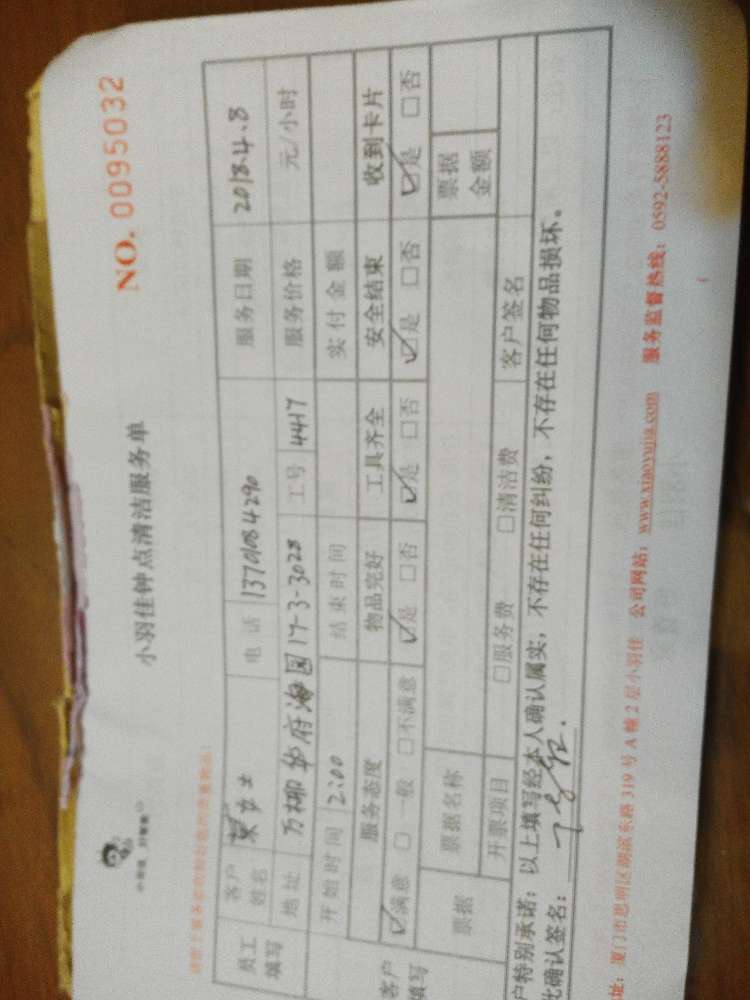 NO. 0095032
小羽佳钟点清洁服务单
员工填写
客户姓名
女士
电话 13701084290
服务日期 2018.4.8
地址 万柳华府海园17-3-3028
工号 4417
服务价格 元/小时
开始时间 2:00
结束时间
实付金额
客户填写
服务态度 物品完好 工具齐全 安全结束 收到卡片
☑满意 □一般 □不满意 ☑是 □否 ☑是 □否 ☑是 □否 ☑是 □否
票据 票据名称 票据金额
开票项目 □服务费 □清洁费 客户签名
户特别承诺：以上填写经本人确认属实，不存在任何纠纷，不存在任何物品损坏。
此确认签名：
址：厦门市思明区湖滨东路319号A幢2层小羽佳 公司网站：www.xiaoyujia.com 服务监督热线：0592-5888123